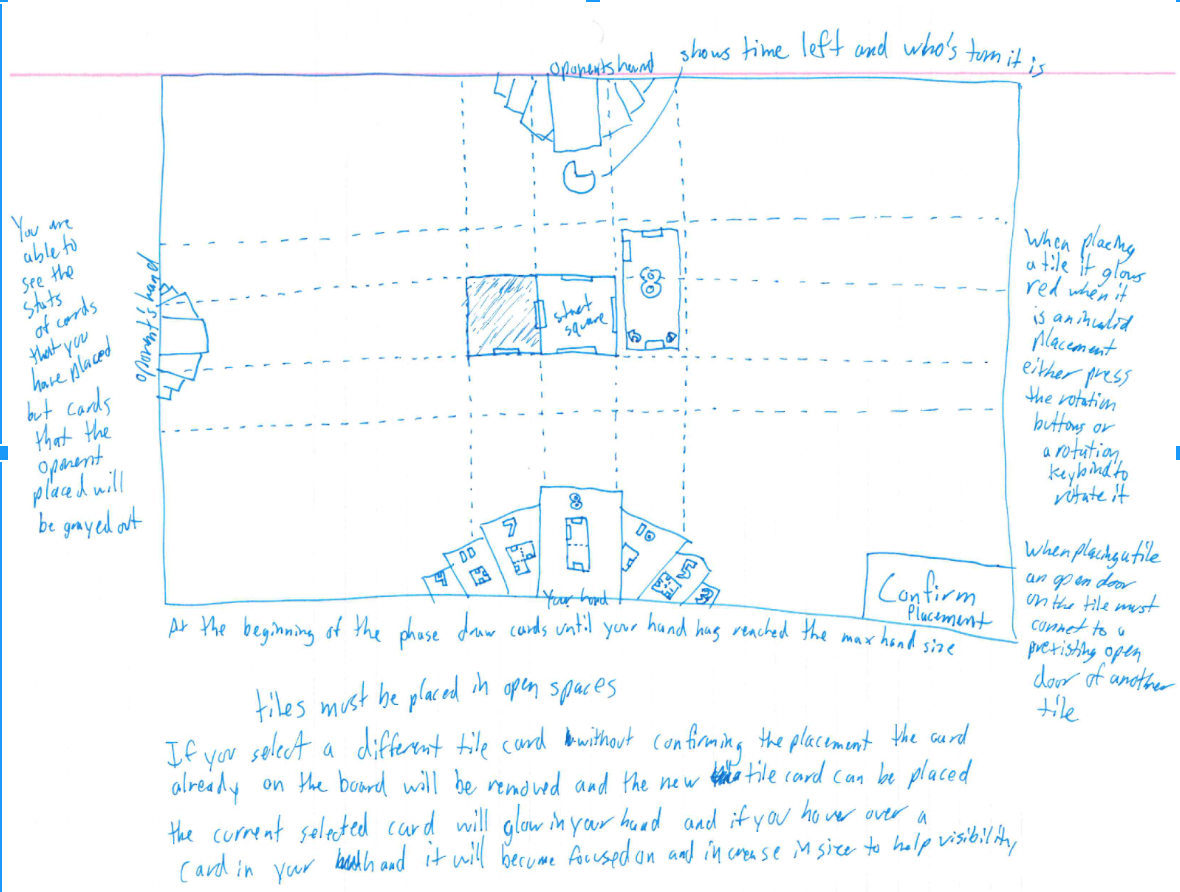 shows time left and who's turn it is
oponents hand
You are
able to
see the
stats
of cards
that you
have placed
but cards
that the
oponent
placed will
be grayed out
oponent's hand
start
square
8
When placing
a tile it glows
red when it
is an invalid
placement
either press
the rotation
buttons or
a rotation
keybind to
rotate it
When placing a tile
an open door
on the tile must
connect to a
prexisting open
door of another
tile
11
7
8
10
Your hand
Confirm
Placement
At the beginning of the phase draw cards until your hand has reached the max hand size
tiles must be placed in open spaces
If you select a different tile card without confirming the placement the card
already on the board will be removed and the new tile card can be placed
the current selected card will glow in your hand and if you hover over a
card in your hand it will become focused on and increase in size to help visibility